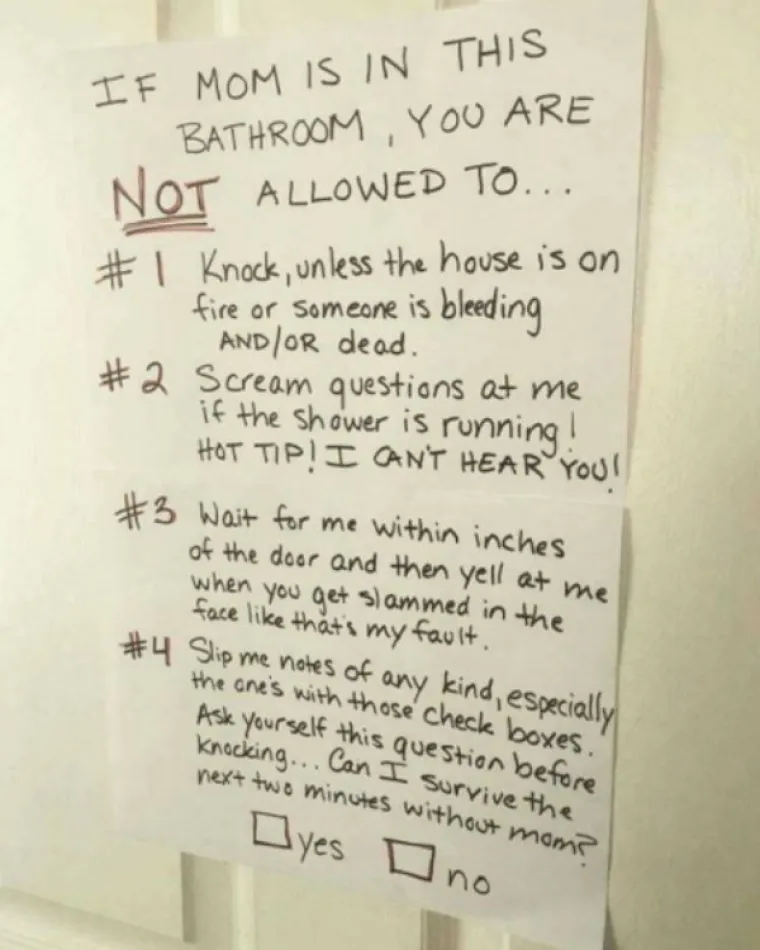 IF MOM IS IN THIS
BATHROOM, YOU ARE
NOT ALLOWED TO...
#1 Knock, unless the house is on
fire or someone is bleeding
AND/OR dead.
#2 Scream questions at me
if the shower is running!
HOT TIP! I CAN'T HEAR YOU!
#3 Wait for me within inches
of the door and then yell at me
when you get slammed in the
face like that's my fault.
#4 Slip me notes of any kind, especially
the one's with those check boxes.
Ask yourself this question before
knocking... Can I survive the
next two minutes without mom?
yes no